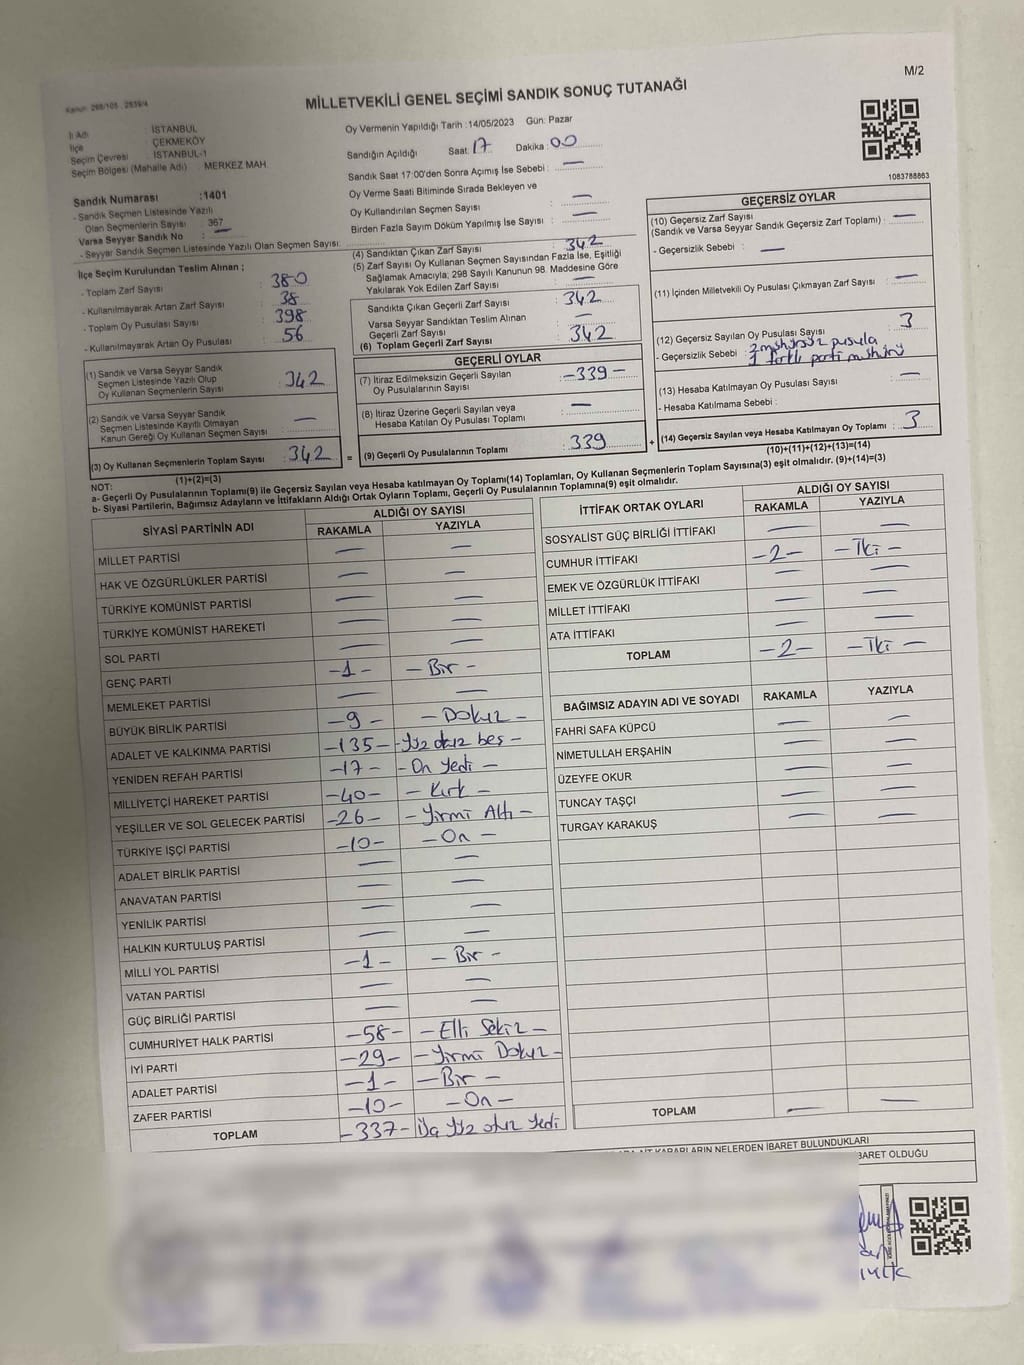 M/2
Kanun: 298/105 , 2839/4
MİLLETVEKİLİ GENEL SEÇİMİ SANDIK SONUÇ TUTANAĞI
İl Adı : İSTANBUL
İlçe : ÇEKMEKÖY
Seçim Çevresi : İSTANBUL-1
Seçim Bölgesi (Mahalle Adı) : MERKEZ MAH.
Sandık Numarası :1401
- Sandık Seçmen Listesinde Yazılı
Olan Seçmenlerin Sayısı : 367
Varsa Seyyar Sandık No : —
- Seyyar Sandık Seçmen Listesinde Yazılı Olan Seçmen Sayısı:
Oy Vermenin Yapıldığı Tarih :14/05/2023 Gün: Pazar
Sandığın Açıldığı Saat: 17 Dakika : 00
Sandık Saat 17:00'den Sonra Açımış İse Sebebi : —
Oy Verme Saati Bitiminde Sırada Bekleyen ve
Oy Kullandırılan Seçmen Sayısı —
Birden Fazla Sayım Döküm Yapılmış İse Sayısı : —
1083788863
İlçe Seçim Kurulundan Teslim Alınan ;
- Toplam Zarf Sayısı : 380
- Kullanılmayarak Artan Zarf Sayısı : 38
- Toplam Oy Pusulası Sayısı : 398
- Kullanılmayarak Artan Oy Pusulası : 56
(1) Sandık ve Varsa Seyyar Sandık
Seçmen Listesinde Yazılı Olup
Oy Kullanan Seçmenlerin Sayısı : 342
(2) Sandık ve Varsa Seyyar Sandık
Seçmen Listesinde Kayıtlı Olmayan
Kanun Gereği Oy Kullanan Seçmen Sayısı : —
(3) Oy Kullanan Seçmenlerin Toplam Sayısı : 342
(1)+(2)=(3)
(4) Sandıktan Çıkan Zarf Sayısı : 342
(5) Zarf Sayısı Oy Kullanan Seçmen Sayısından Fazla İse, Eşitliği
Sağlamak Amacıyla, 298 Sayılı Kanunun 98. Maddesine Göre
Yakılarak Yok Edilen Zarf Sayısı : —
Sandıkta Çıkan Geçerli Zarf Sayısı : 342
Varsa Seyyar Sandıktan Teslim Alınan
Geçerli Zarf Sayısı : —
(6) Toplam Geçerli Zarf Sayısı : 342
GEÇERLİ OYLAR
(7) İtiraz Edilmeksizin Geçerli Sayılan
Oy Pusulalarının Sayısı : -339-
(8) İtiraz Üzerine Geçerli Sayılan veya
Hesaba Katılan Oy Pusulası Toplamı : —
= (9) Geçerli Oy Pusulalarının Toplamı : 339
GEÇERSİZ OYLAR
(10) Geçersiz Zarf Sayısı
(Sandık ve Varsa Seyyar Sandık Geçersiz Zarf Toplamı) : —
- Geçersizlik Sebebi : —
(11) İçinden Milletvekili Oy Pusulası Çıkmayan Zarf Sayısı : —
(12) Geçersiz Sayılan Oy Pusulası Sayısı : 3
- Geçersizlik Sebebi : 2 mühürsüz pusula
1 farklı parti mühürü
(13) Hesaba Katılmayan Oy Pusulası Sayısı : —
- Hesaba Katılmama Sebebi :
+ (14) Geçersiz Sayılan veya Hesaba Katılmayan Oy Toplamı : 3
(10)+(11)+(12)+(13)=(14)
NOT:
a- Geçerli Oy Pusulalarının Toplamı(9) ile Geçersiz Sayılan veya Hesaba katılmayan Oy Toplamı(14) Toplamları, Oy Kullanan Seçmenlerin Toplam Sayısına(3) eşit olmalıdır. (9)+(14)=(3)
b- Siyasi Partilerin, Bağımsız Adayların ve İttifakların Aldığı Ortak Oyların Toplamı, Geçerli Oy Pusulalarının Toplamına(9) eşit olmalıdır.
SİYASİ PARTİNİN ADI ALDIĞI OY SAYISI
RAKAMLA YAZIYLA
MİLLET PARTİSİ — —
HAK VE ÖZGÜRLÜKLER PARTİSİ — —
TÜRKİYE KOMÜNİST PARTİSİ — —
TÜRKİYE KOMÜNİST HAREKETİ — —
SOL PARTİ — —
GENÇ PARTİ -1- - Bir -
MEMLEKET PARTİSİ — —
BÜYÜK BİRLİK PARTİSİ -9- - Dokuz -
ADALET VE KALKINMA PARTİSİ -135- - Yüz otuz beş -
YENİDEN REFAH PARTİSİ -17- - On Yedi -
MİLLİYETÇİ HAREKET PARTİSİ -40- - Kırk -
YEŞİLLER VE SOL GELECEK PARTİSİ -26- - Yirmi Altı -
TÜRKİYE İŞÇİ PARTİSİ -10- - On -
ADALET BİRLİK PARTİSİ — —
ANAVATAN PARTİSİ — —
YENİLİK PARTİSİ — —
HALKIN KURTULUŞ PARTİSİ — —
MİLLİ YOL PARTİSİ -1- - Bir -
VATAN PARTİSİ — —
GÜÇ BİRLİĞİ PARTİSİ — —
CUMHURİYET HALK PARTİSİ -58- - Elli Sekiz -
İYİ PARTİ -29- - Yirmi Dokuz -
ADALET PARTİSİ -1- - Bir -
ZAFER PARTİSİ -10- - On -
TOPLAM -337- Üç Yüz otuz Yedi
İTTİFAK ORTAK OYLARI ALDIĞI OY SAYISI
RAKAMLA YAZIYLA
SOSYALİST GÜÇ BİRLİĞİ İTTİFAKI — —
CUMHUR İTTİFAKI -2- - İki -
EMEK VE ÖZGÜRLÜK İTTİFAKI — —
MİLLET İTTİFAKI — —
ATA İTTİFAKI — —
TOPLAM -2- - İki -
BAĞIMSIZ ADAYIN ADI VE SOYADI RAKAMLA YAZIYLA
FAHRİ SAFA KÜPCÜ — —
NİMETULLAH ERŞAHİN — —
ÜZEYFE OKUR — —
TUNCAY TAŞÇI — —
TURGAY KARAKUŞ — —
TOPLAM — —
KARARLARIN NELERDEN İBARET BULUNDUKLARI
BARET OLDUĞU